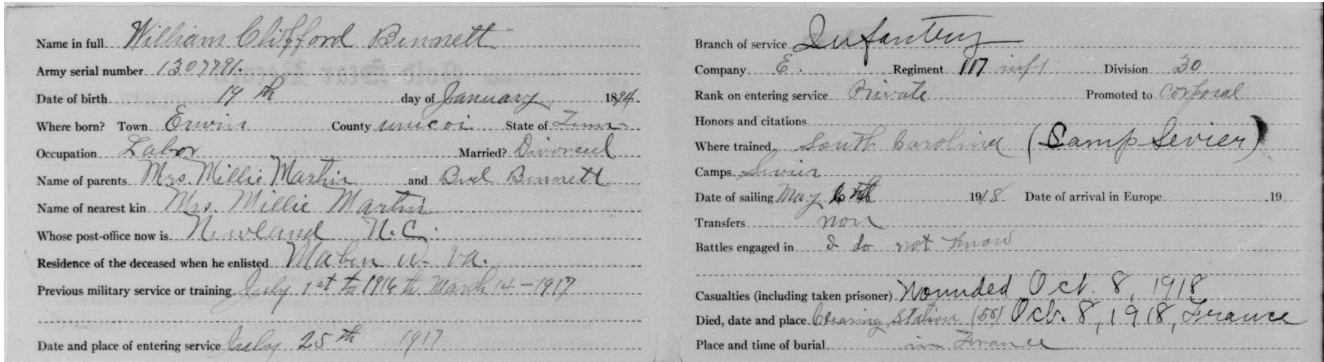 Name in full William Clifford Bennett
Army serial number 1307791.
Date of birth 19th day of January 1894
Where born? Town Erwin County unicoi State of Tenn
Occupation Labor Married? Divorced
Name of parents Mrs. Millie Martin and Burl Bennett
Name of nearest kin Mrs. Millie Martin
Whose post-office now is Newland N.C.
Residence of the deceased when he enlisted Maben W. Va.
Previous military service or training July 1st to 1916 to March 14-1917
Date and place of entering service July 25th 1917
Branch of service Infantry
Company E. Regiment 117 inft Division 30
Rank on entering service Private Promoted to Corporal
Honors and citations
Where trained South Carolina (Camp Sevier)
Camps Sevier
Date of sailing May 1918 Date of arrival in Europe 19
Transfers non
Battles engaged in I do not know
Casualties (including taken prisoner) Wounded Oct. 8, 1918
Died, date and place Clearing Station (55) Oct. 8, 1918, France
Place and time of burial in France